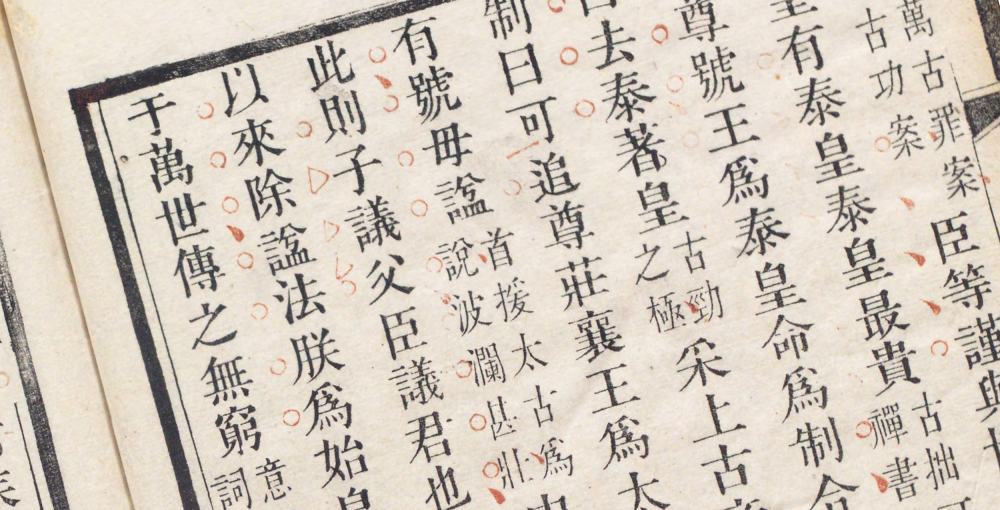 萬古罪案
古功案
臣等謹與
有泰皇泰皇最貴
古拙
禪書
尊號王爲泰皇命爲制令
去泰著皇
古勁
之極
采上古
制曰可追尊莊襄王爲太
有號毋諡
首援太古爲
說波瀾甚壯
此則子議父臣議君也
以來除諡法朕爲始皇
于萬世傳之無窮
意
詞